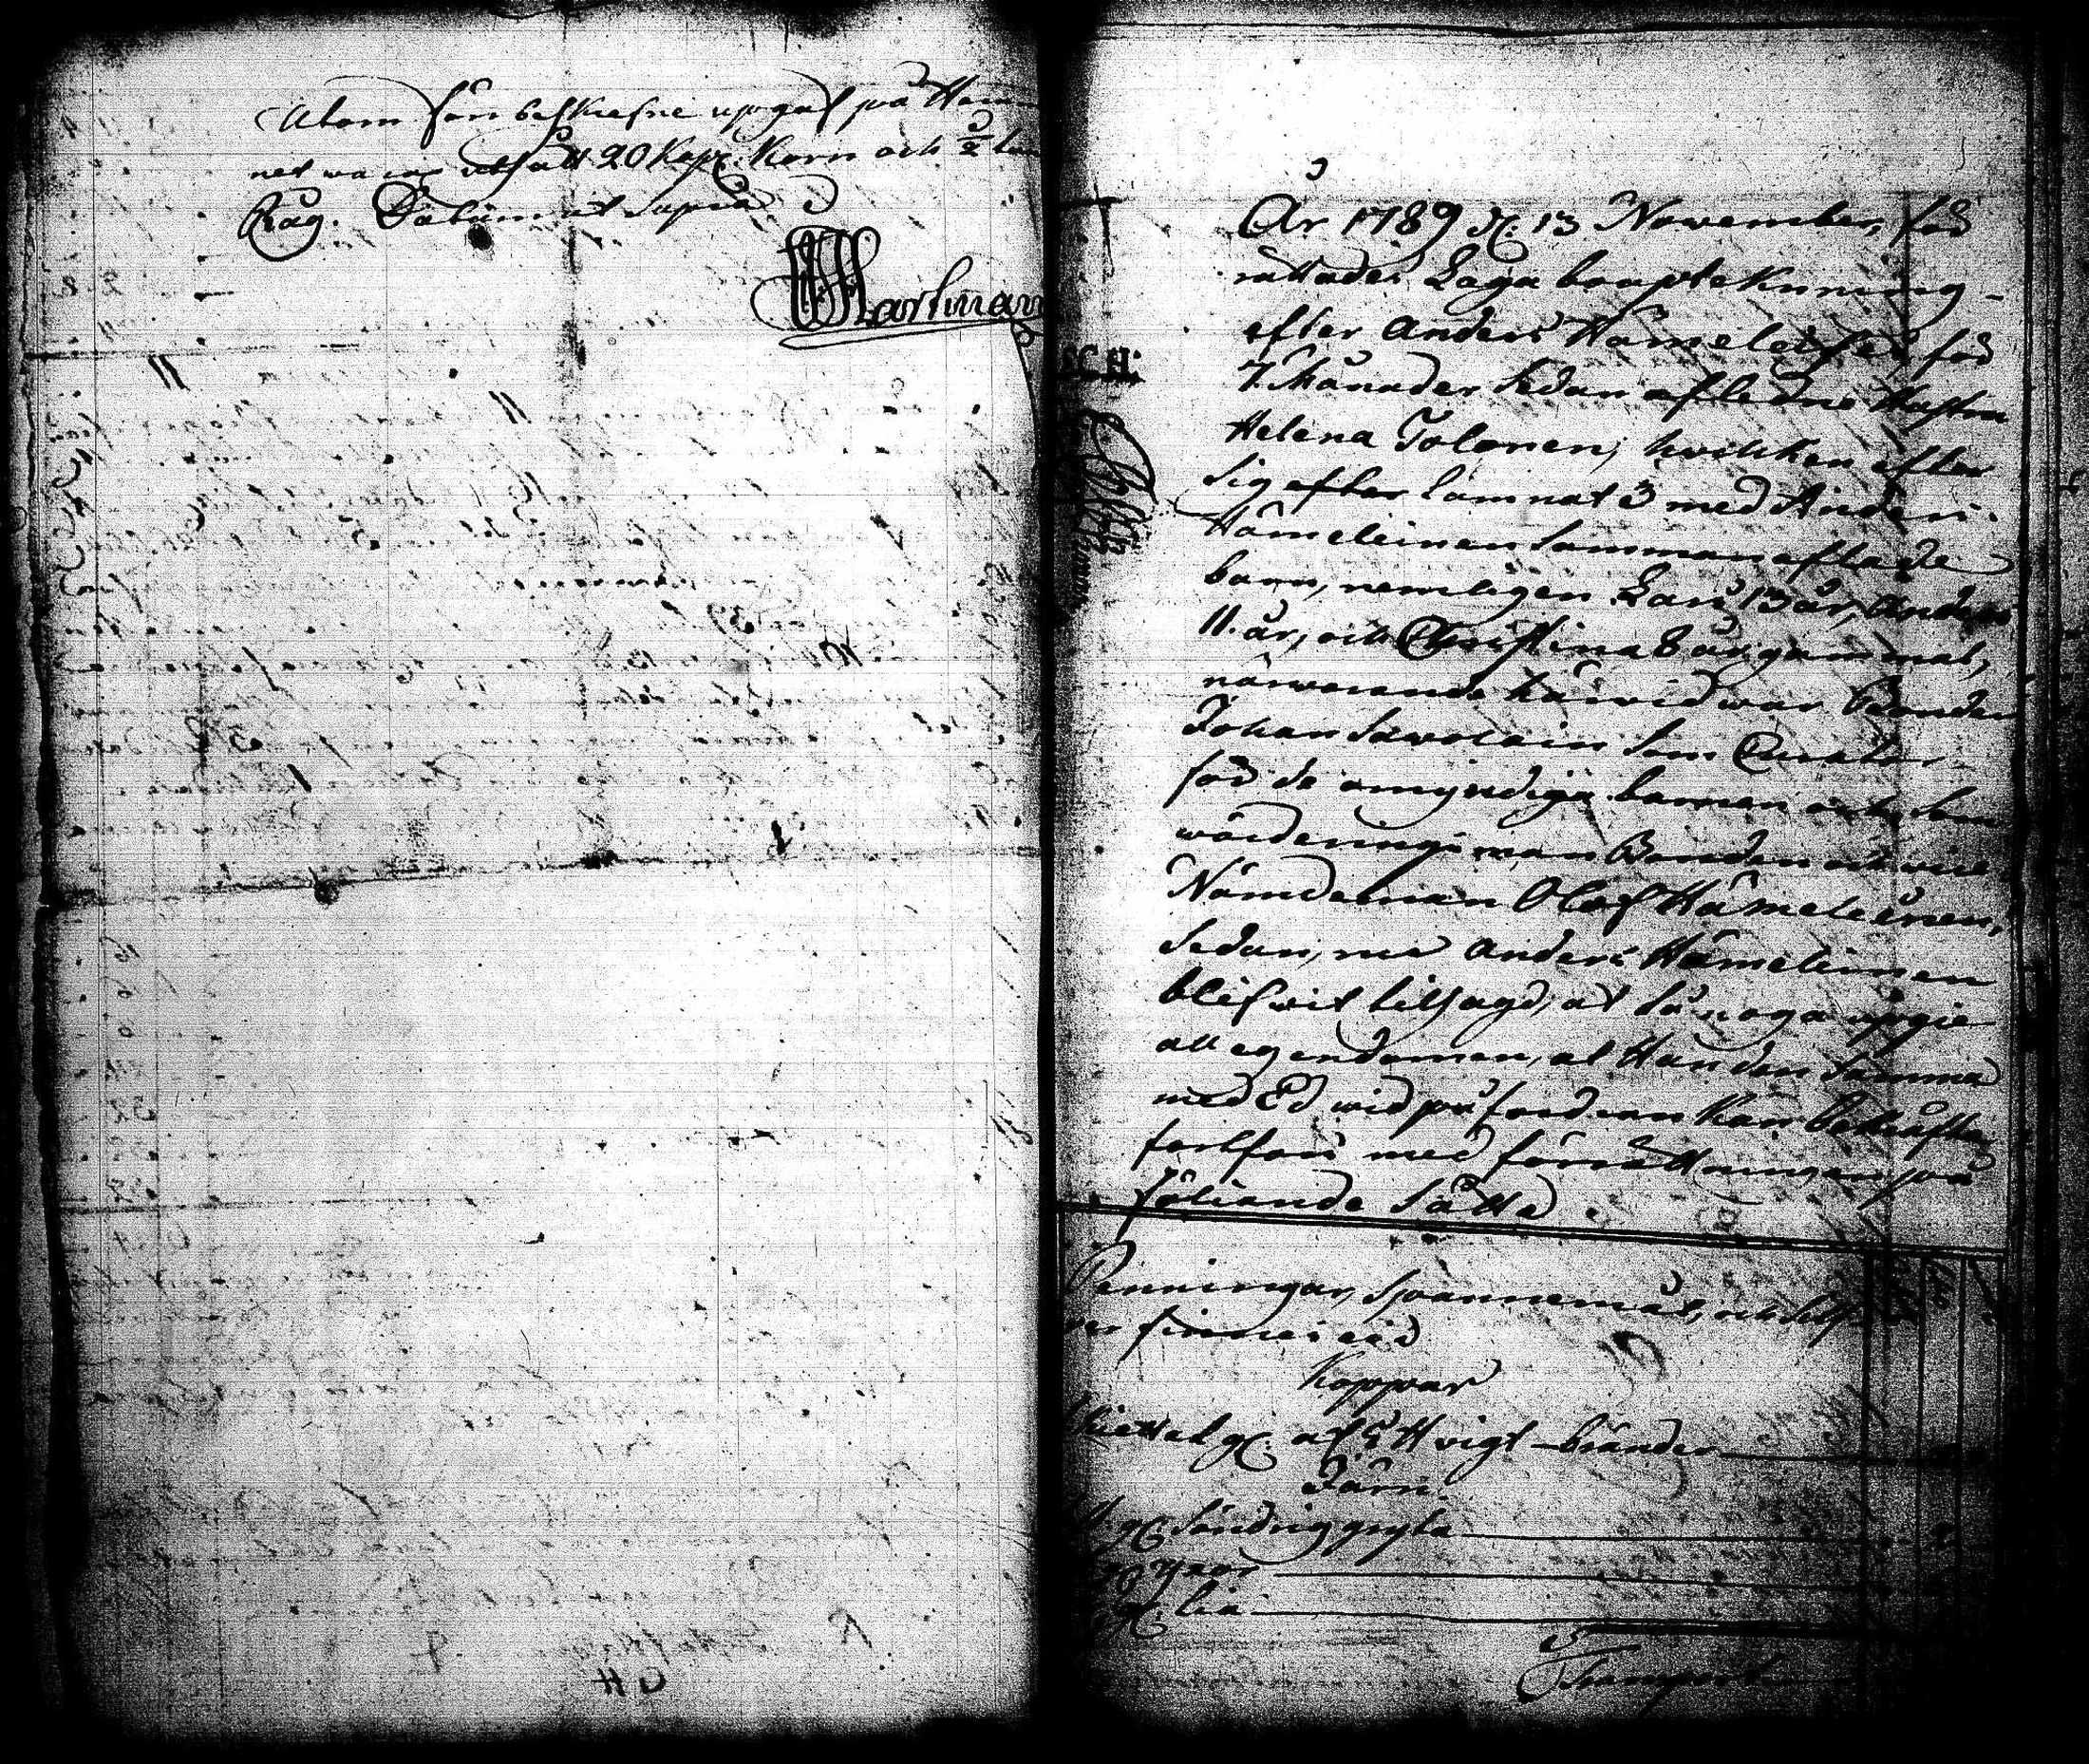 Utom förr beskrefne upgaf på Hem
net wara utsådt 20 Kapr. Korn och ½
Råg. Datum ut supra
Hartman
År 1789 d. 13 November, för
rättades Laga bouptekning
efter Anders Hämeleises för
7. Månader sedan afledne Hustru
Helena Tolonen, hvilken efter
sig efter lämnat 3 med Anders
Hämeleinen sammanaflade
barn, nemligen Lars 13 år, Anders
11. år, och Christina 8 år gammal,
närwarande härwid war Bonden
Johan Sawolain som Curator
för de omyndiga barnen och som
wärderings man Bonden och vice
Nämdeman Olof Hämeleinen,
sedan, me Anders Hämeleinen
blifwit tilsagd, at så noga upgie
all egendomen, at Han den samma
med Ed wid påfordran kan bekräfta,
fortfors med förrättningen på
föliande Sätt
Penningar, Spannemål, och Silf
wer finnes eij
Koppar
Kiettel st. af 5 ℔ vigt bränder
Järn
st. Söndrig gryta
yxor
st. lia
Transport